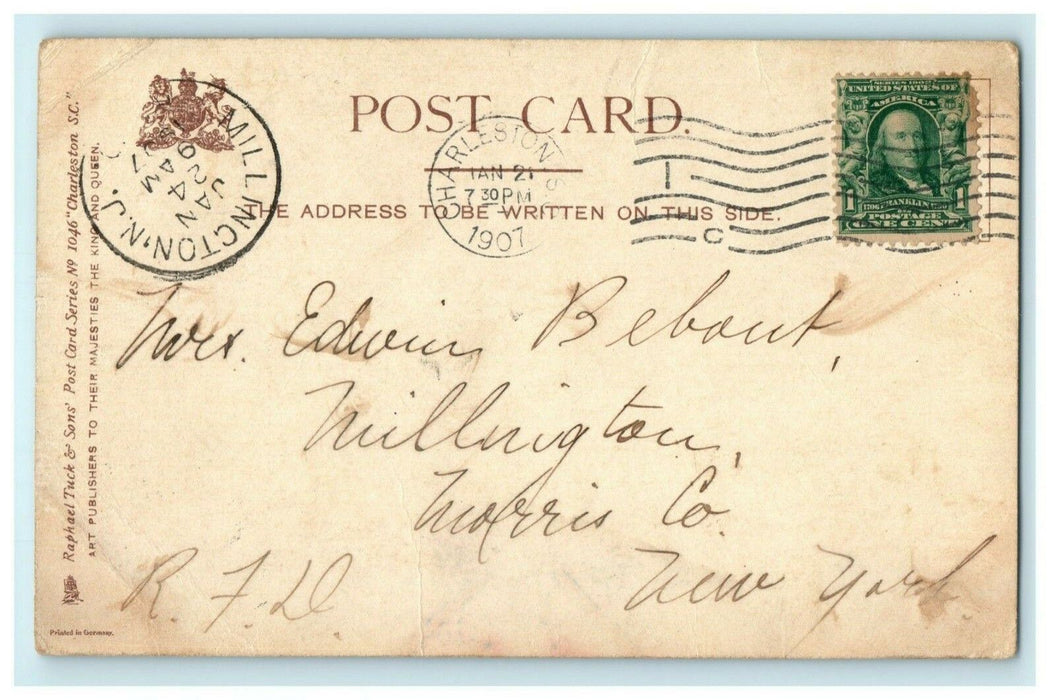 POST CARD.
THE ADDRESS TO BE WRITTEN ON THIS SIDE.
MILLINGTON, N.J.
JAN
24
9 AM
CHARLESTON S.C.
JAN 21
7 30 PM
1907
C
SERIES 1902
UNITED STATES OF
AMERICA
1 1
1706 FRANKLIN 1790
POSTAGE
ONE CENT
Mrs. Edwin Bebout,
Millington,
Morris Co.
New York.
R. F. D
Raphael Tuck & Sons' Post Card Series No 1046 "Charleston S.C."
ART PUBLISHERS TO THEIR MAJESTIES THE KING AND QUEEN.
Printed in Germany.